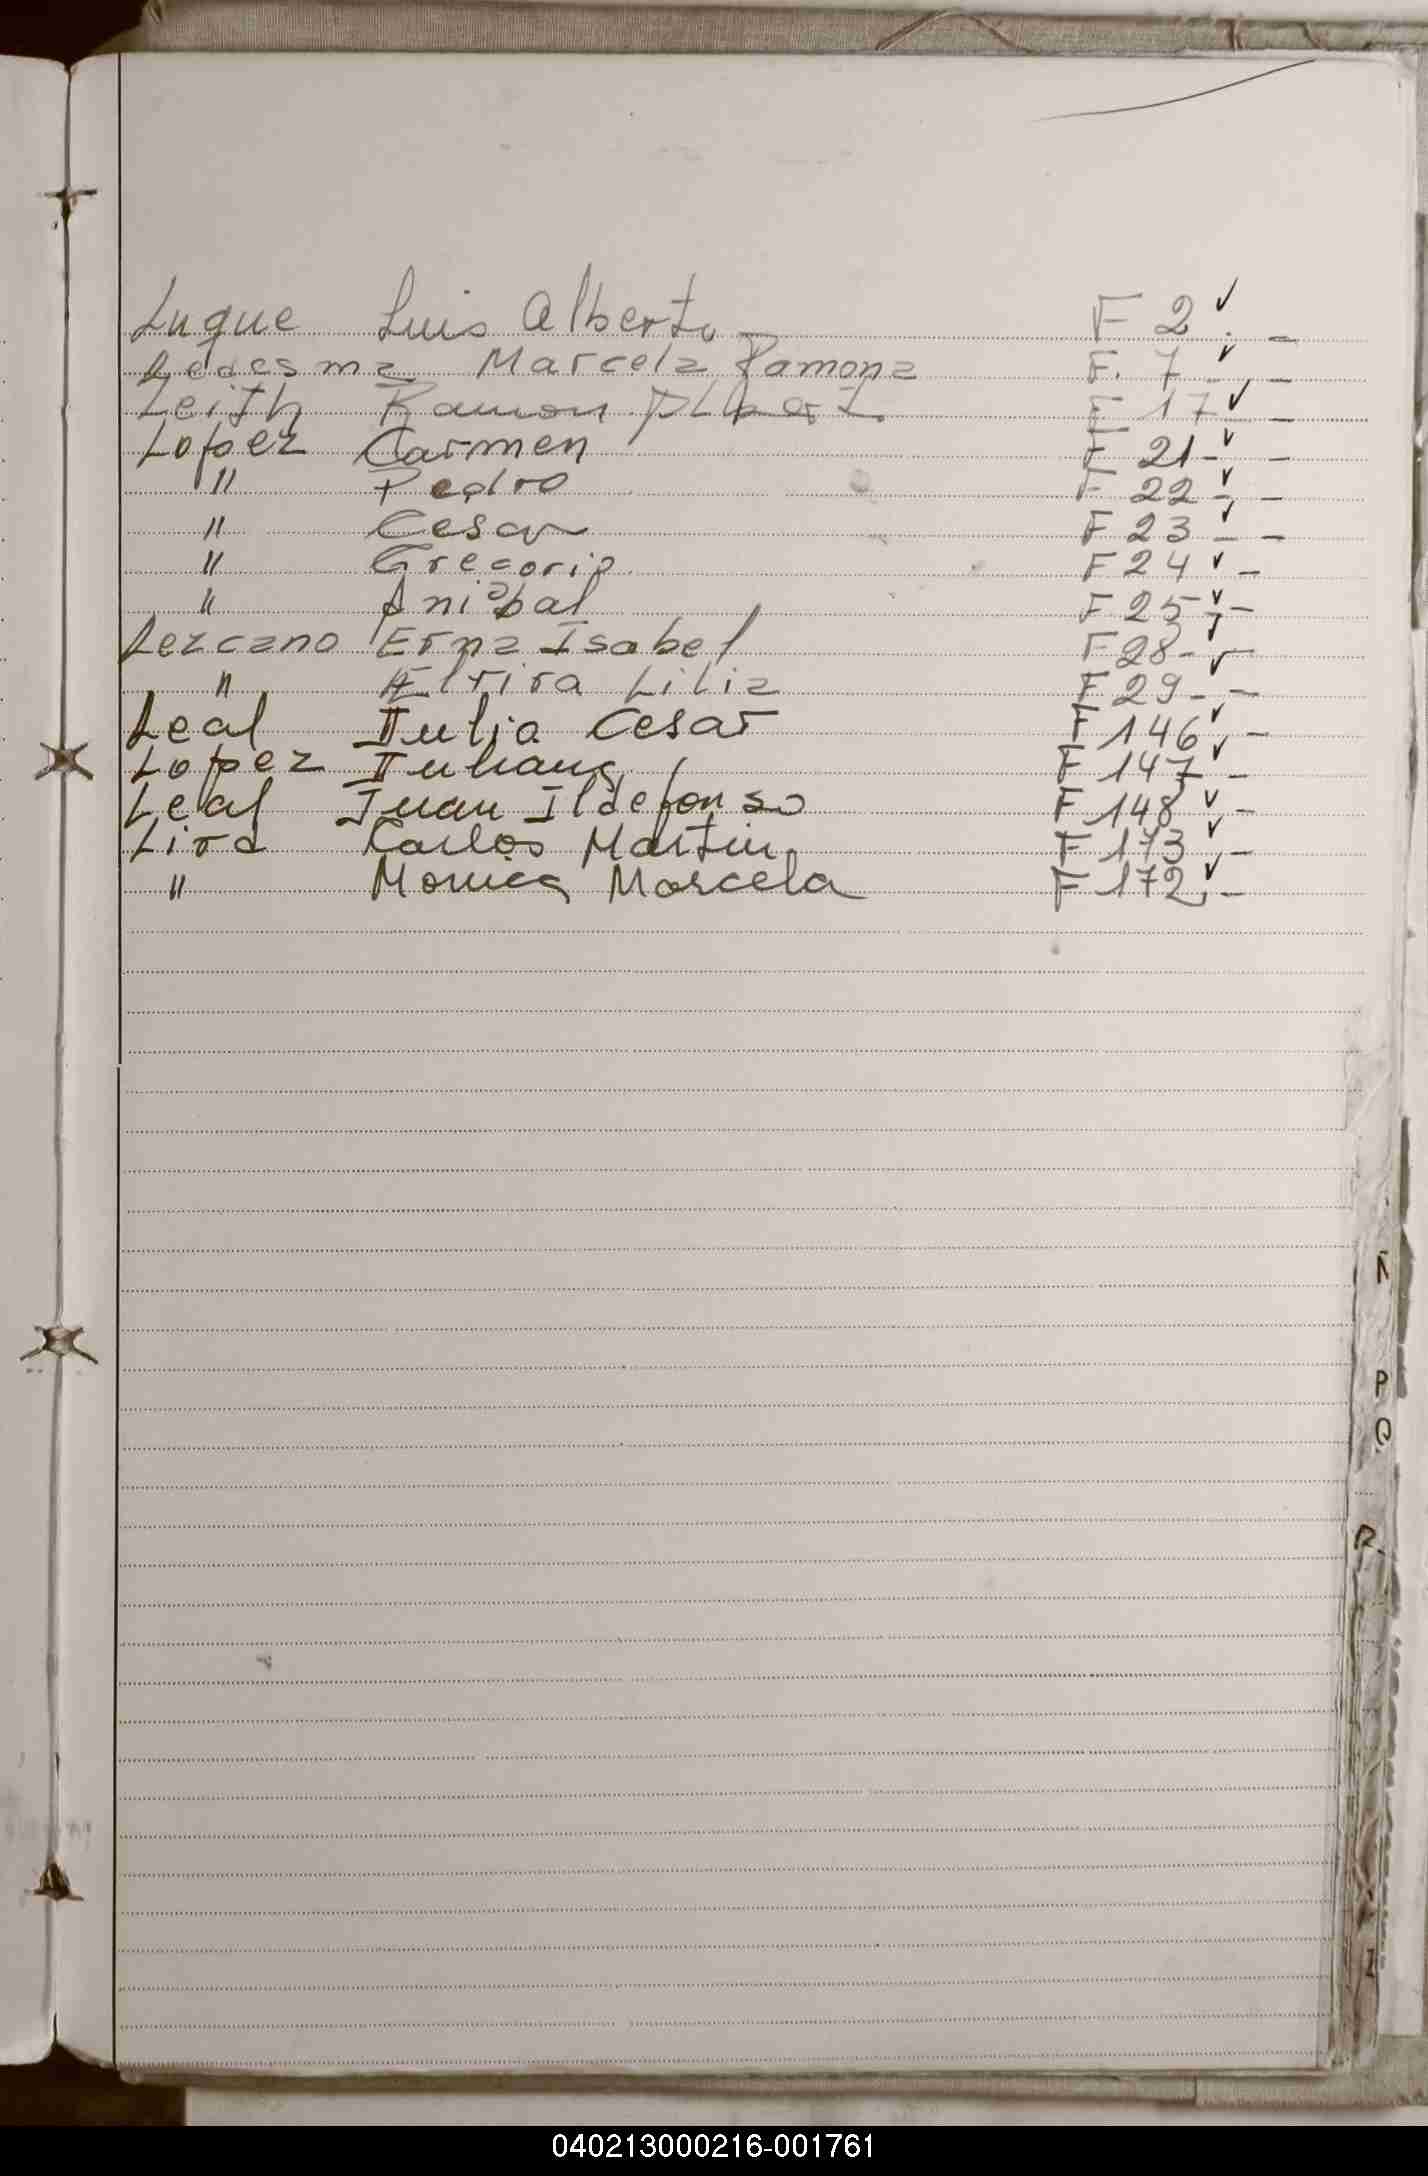 Luque Luis Alberto F 2 ✓ . -
Ledesma Marcela Ramona F. 7 ✓ - . -
Leith Ramon Albert F 17 ✓ - -
Lopez Carmen F 21 - ✓ -
" Pedro F 22 ✓ - . -
" Cesar F 23 ✓ - -
" Gregorio F 24 ✓ -
" Anibal F 25 ✓ - -
Lezcano Erna Isabel F 28 - ✓ -
" Elvira Lilia F 29 - ✓ . -
Leal Julia Cesar F 146 ✓ . -
Lopez Juliana F 147 ✓ -
Leal Juan Ildefonso F 148 ✓ -
Lird Carlos Martin. F 173 ✓ . -
" Monica Marcela F 172 ✓ . -
Ñ
P
Q
R
040213000216-001761